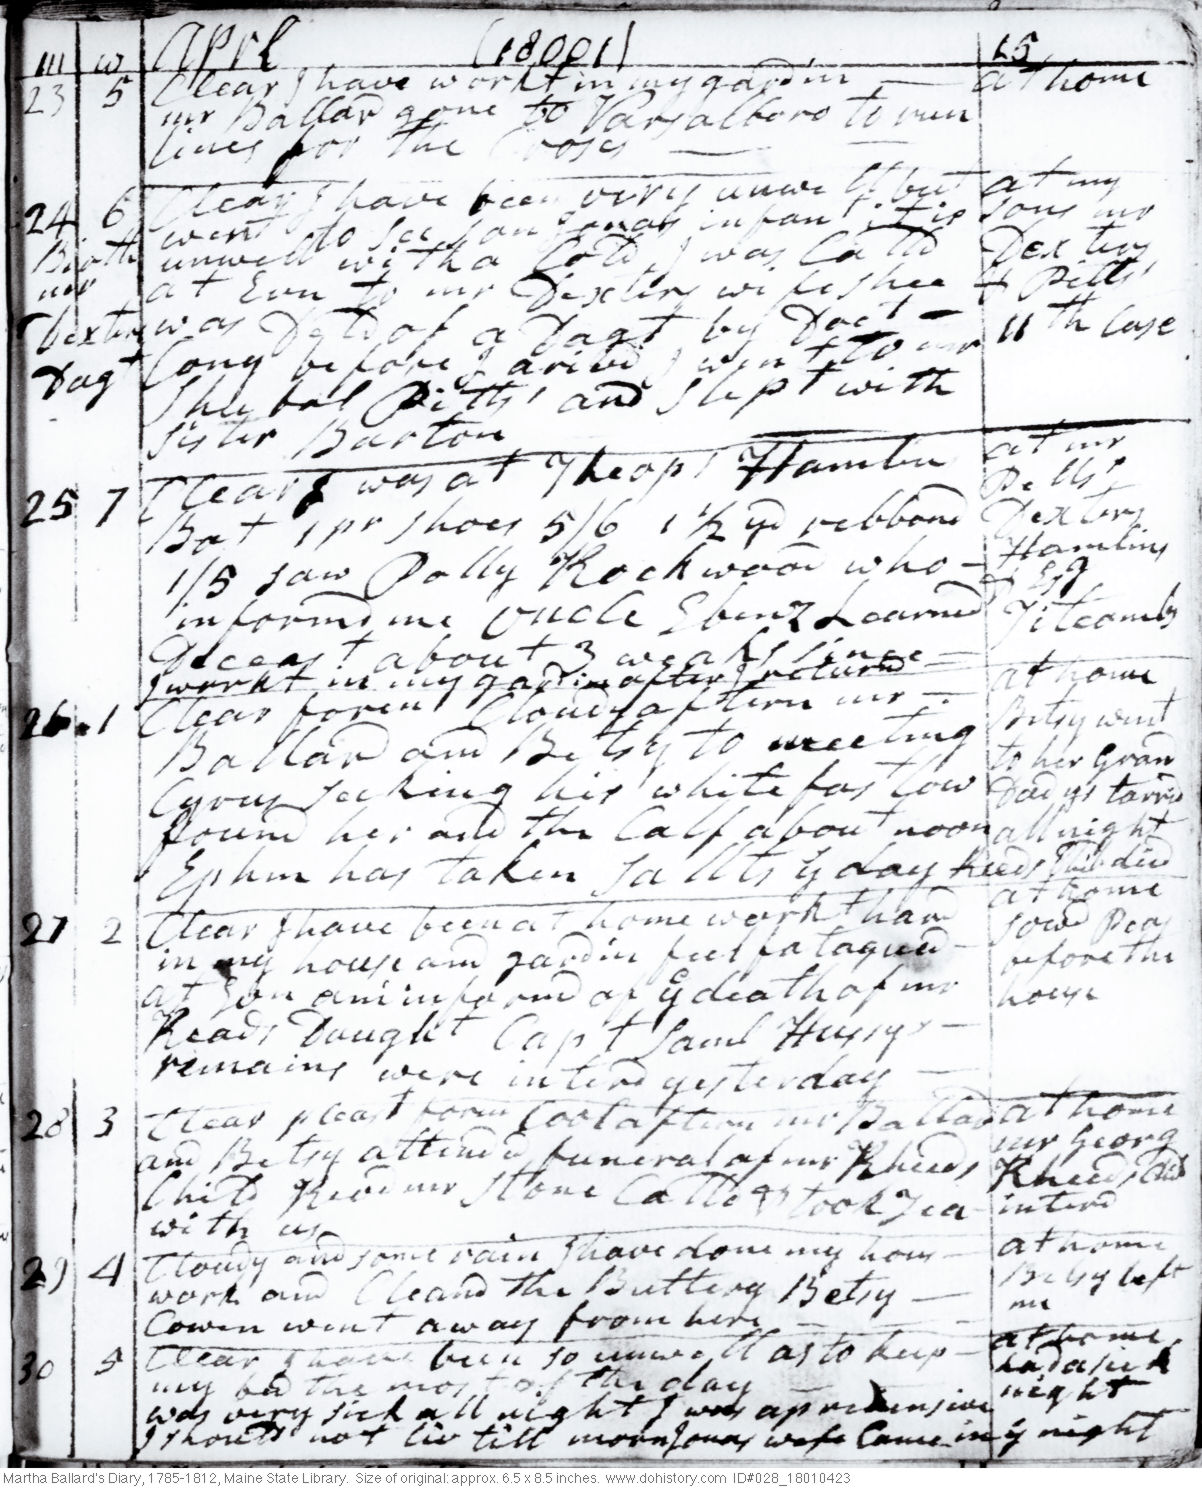 m w Aprl (1801) 15
23 5 Clear I have workt in my gardin — at home
mr Ballard gone to Varsalboro to run
lines for the Croses —
24 6 Clear I have been very unwell but at my
went to see son Jonas infant it is sons mr
Birth unwell with a Cold I was Calld Dexters
mr at Evn to mr Dexters wife shee & Pitts'
Dexters was Deld of a Dagt by Doct — 11th Case
Dagt Cony before I arivd I went to mr
Shubal Pitts' and Slept with
Sister Barton
25 7 Clear I was at Theops Hamlin at mr
Bot 1 pr Shoes 5/6 1 1/2 yd ribbond Pitts'
1/5 saw Polly Rockwood who — Dexters
informd me Uncle Ebenz Learned Hamlins
Deceast about 3 weaks since — & Esq
I workt in my gardin after I returnd Titcombs
26 1 Clear foren Cloudy aftern mr — at home
Ballard and Betsy to meeting Betsy went
Cyrus seeking his white fas Cow to her Grand
found her and the Calf about noon Dadys tarrid
Ephm has taken Sallts ys day all night
Reeds Child died
27 2 Clear I have been at home workt hard at home
in my house and gardin feel fatagued — sowd Peas
at Evn am informd of ye death of mr before the
Reads Dought Capt Saml Hussys — house
remains were interd yesterday —
28 3 Clear pleast foren Cool aftern mr Ballard at home
and Betsy attended funeral of mr Rheeds mr Georg
Child Revd mr Stone Calld & took Tea Rheeds Child
with us interd
29 4 Cloudy and some rain I have done my hous — at home
work and Cleand the Buttery Betsy — Betsy left
Cowen went away from here — me
30 5 Clear I have been so unwell as to keep — at home
my bed the most of the day — had a sick
was very sick all night I was aprehensive night
I should not liv till morn Jonas wife Came in ye night
Martha Ballard's Diary, 1785-1812, Maine State Library. Size of original: approx. 6.5 x 8.5 inches. www.dohistory.com ID#028_18010423